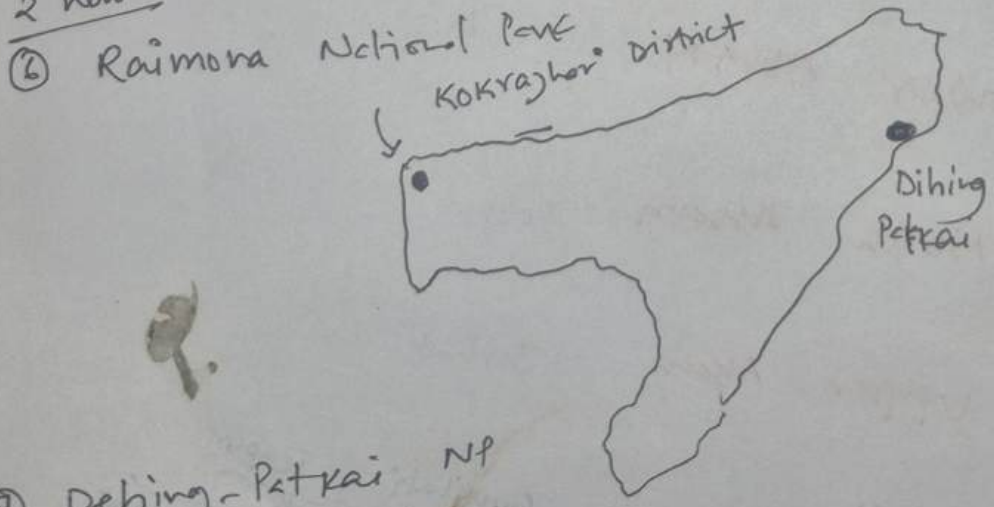 2
⑥ Raimona National Park
Kokrajhar District
Dihing
Patkai
Dehing-Patkai NP